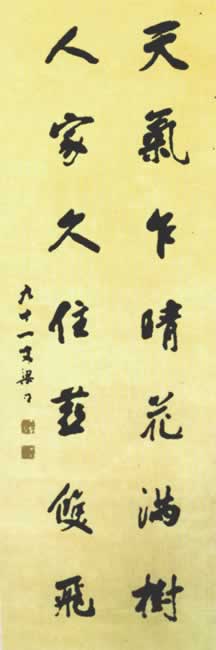 天氣乍晴花滿樹
人家久住燕雙飛
九十一叟梁